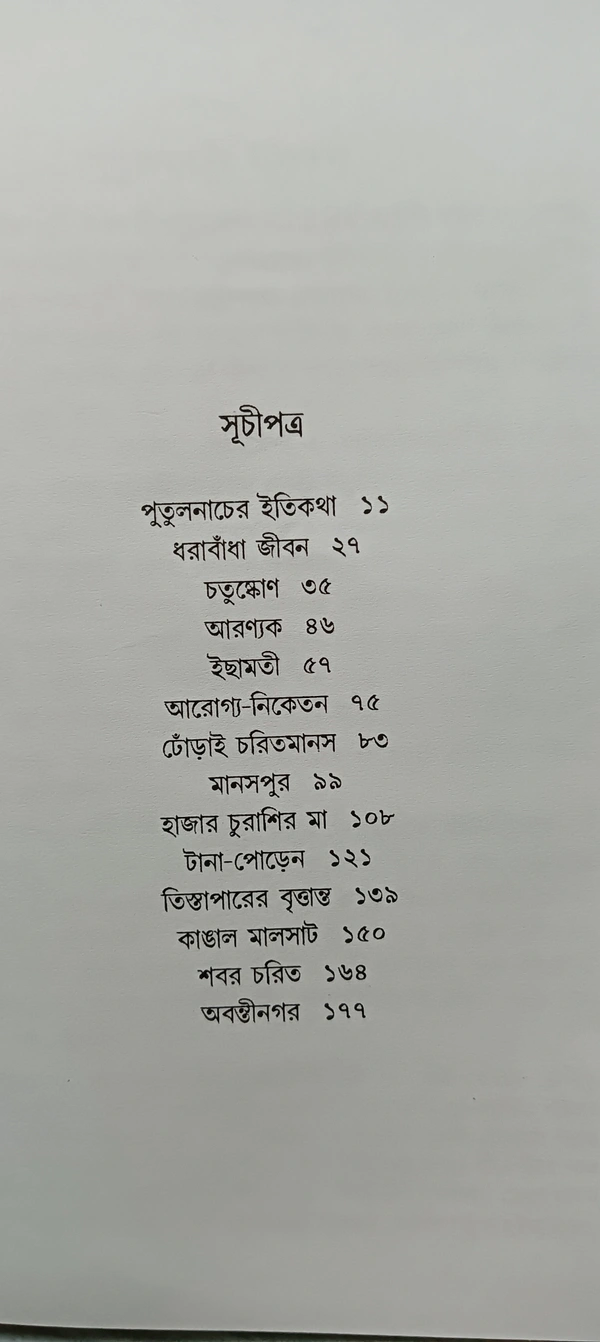 সূচীপত্র
পুতুলনাচের ইতিকথা ১১
ধরাবাঁধা জীবন ২৭
চতুষ্কোণ ৩৫
আরণ্যক ৪৬
ইছামতী ৫৭
আরোগ্য-নিকেতন ৭৫
ঢোঁড়াই চরিতমানস ৮৩
মানসপুর ৯৯
হাজার চুরাশির মা ১০৮
টানা-পোড়েন ১২১
তিস্তাপারের বৃত্তান্ত ১৩৯
কাঙাল মালসাট ১৫০
শবর চরিত ১৬৪
অবন্তীনগর ১৭৭